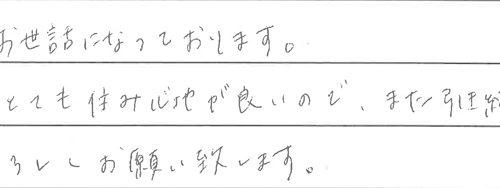 お世話になっております。
とても住み心地が良いので、また引き続
ろしくお願い致します。